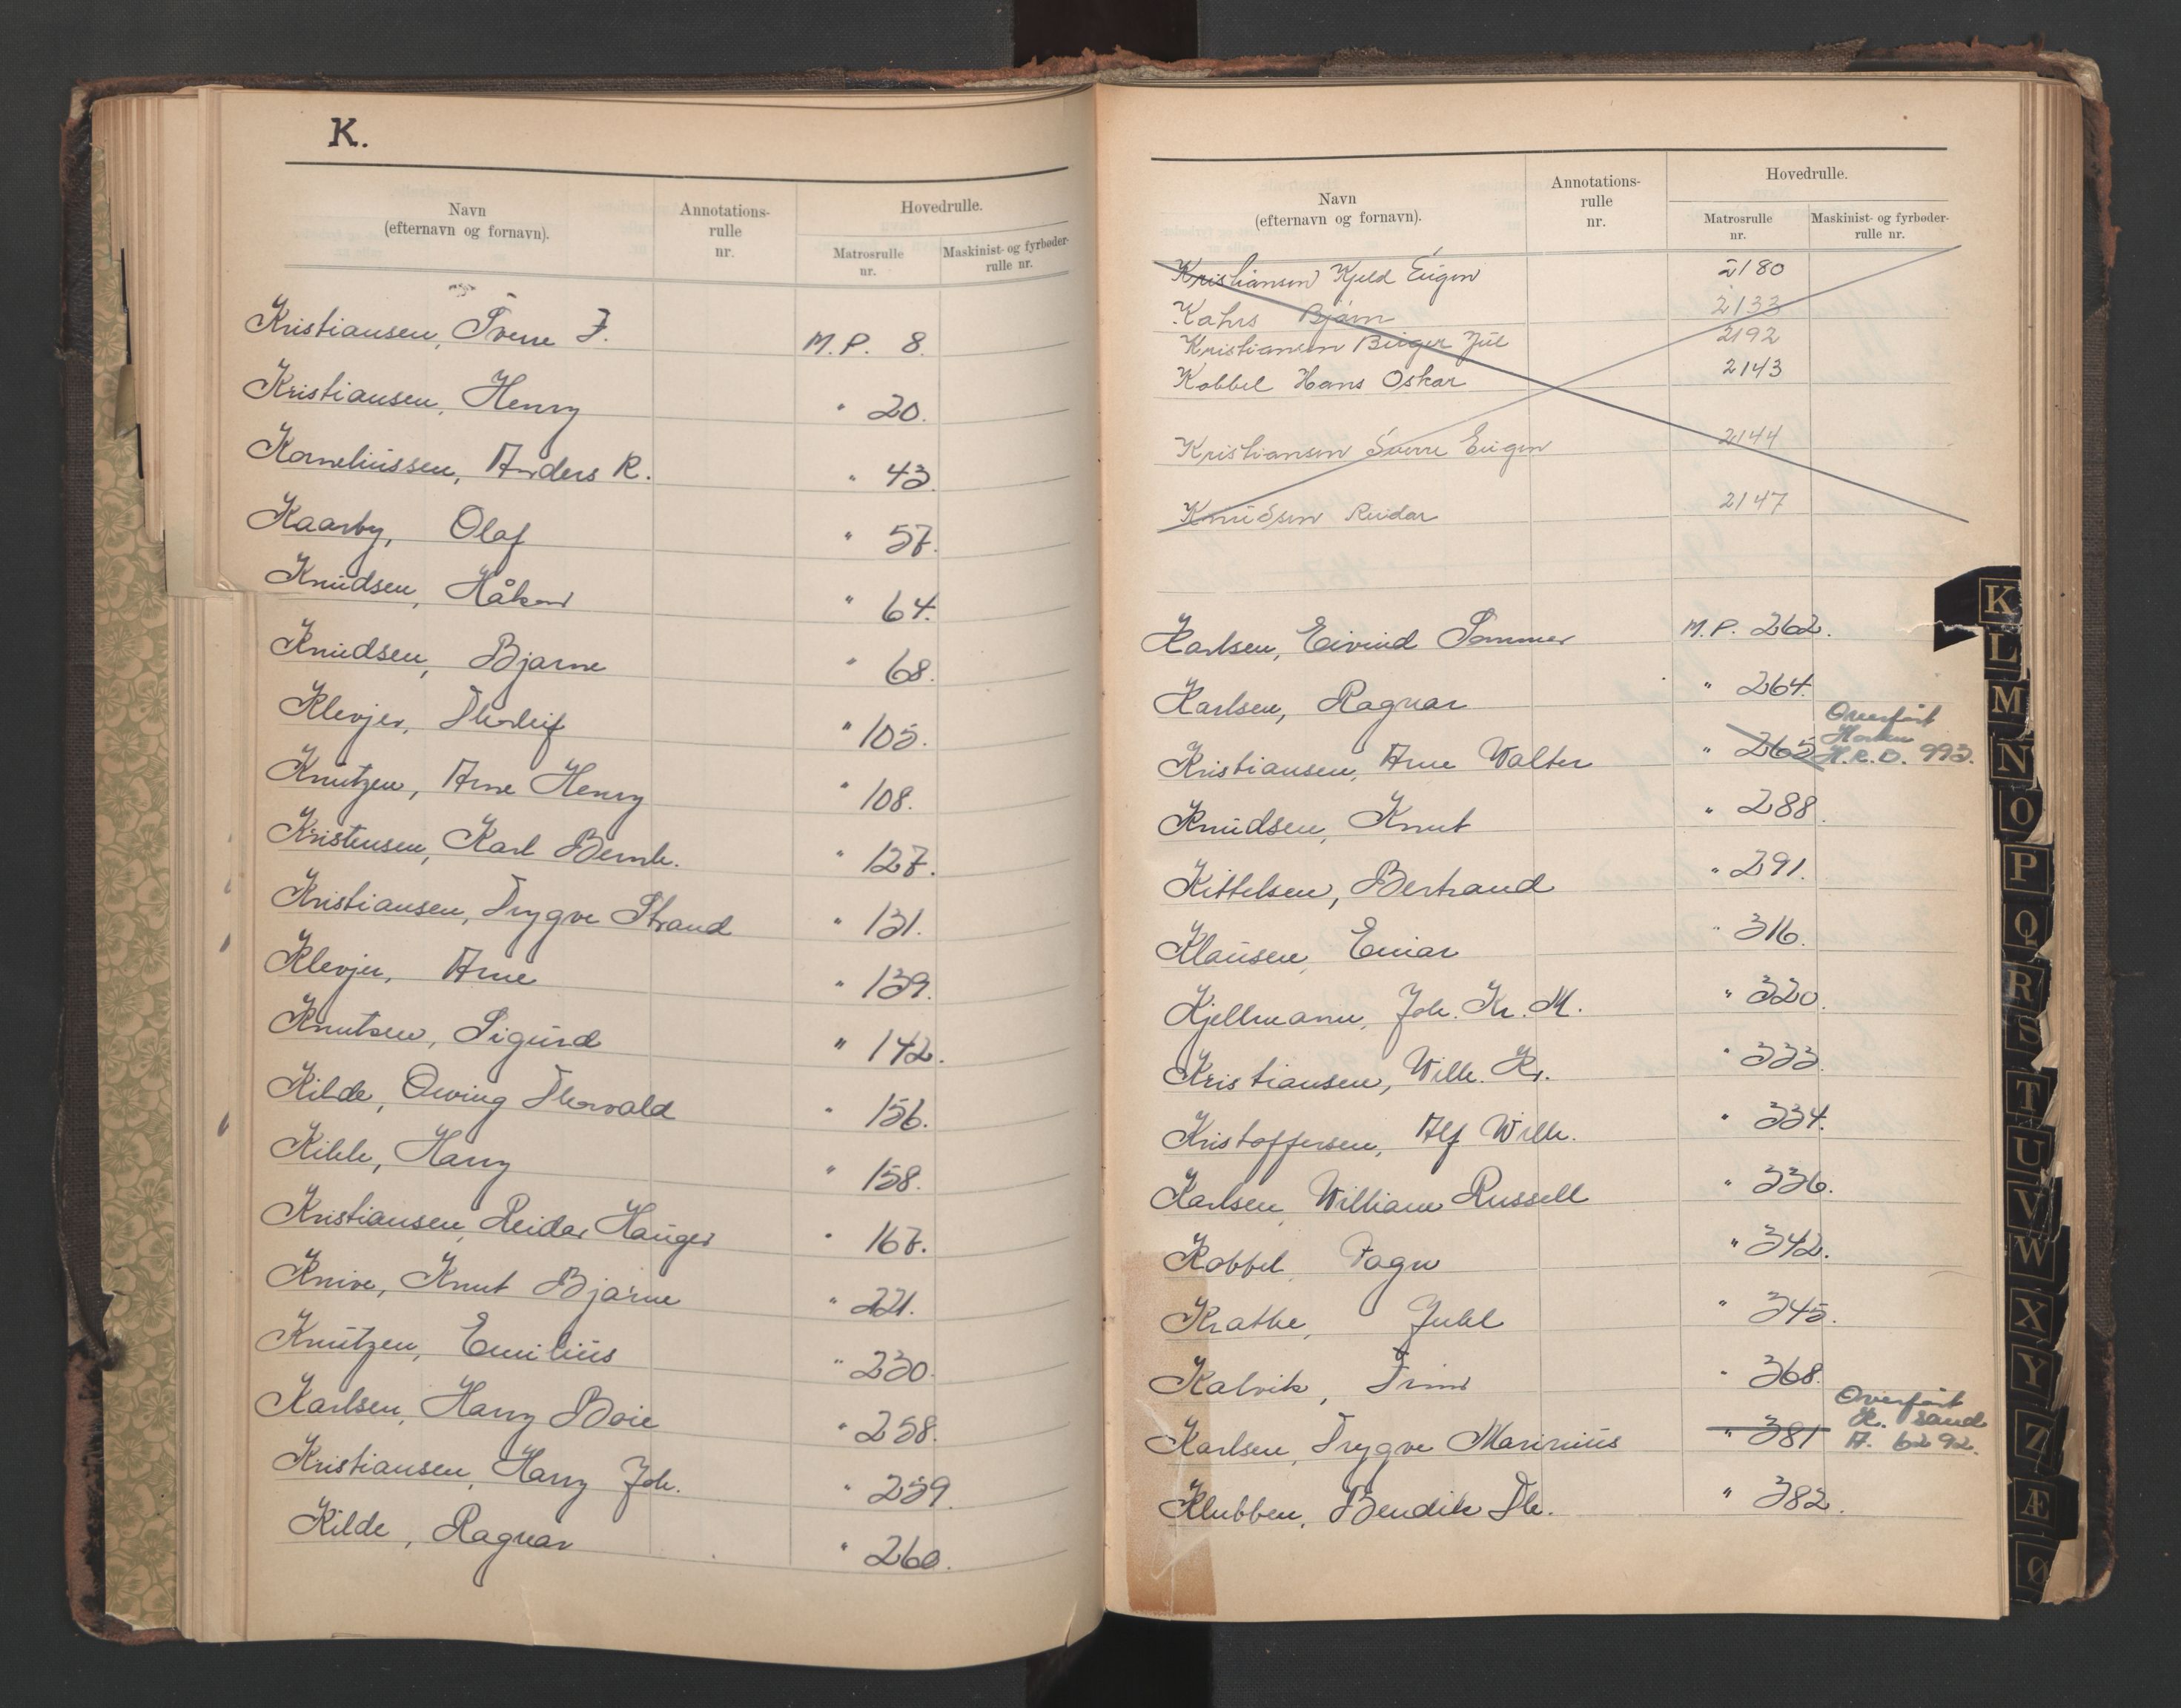 K.
Navn
(efternavn og fornavn).
Annotations-
rulle
nr.
Hovedrulle.
Matrosrulle
nr.
Maskinist- og fyrbøder-
rulle nr.
Kristiansen, Sverre J. M.P. 8.
Kristiansen, Henry " 20.
Korneliussen, Anders R. " 43.
Kaarby, Olaf " 57.
Knudsen, Håkon " 64.
Knudsen, Bjarne " 68.
Klevjer, Thorleif " 105.
Knutzen, Arne Henry " 108.
Kristensen, Karl Bernh. " 127.
Kristiansen, Trygve Strand " 131.
Klevjer, Arne " 139.
Knutsen, Sigurd " 142.
Kilde, Thorvald " 156.
Kihle, Harry " 158.
Kristiansen, Reidar Hauger " 167.
Knive, Knut Bjarne " 221.
Knutzen, Emilius " 230.
Karlsen, Harry Boie " 258.
Kristiansen, Harry Joh. " 259.
Kilde, Ragnar " 260.
Navn
(efternavn og fornavn).
Annotations-
rulle
nr.
Hovedrulle.
Matrosrulle
nr.
Maskinist- og fyrbøder-
rulle nr.
Kristiansen Kjeld Eugen 2180
Kahrs Bjørn 2133
Kristiansen Birger Jul 2192
Kobbel Hans Oskar 2143
Kristiansen Sverre Eugen 2144
Knudsen Reidar 2147
Karlsen, Eivind Sommer M.P. 262.
Karlsen, Ragnar " 264.
Kristiansen, Arne Walter " 265 Overført
Horten
H.R.O. 993.
Knudsen, Knut " 288.
Kittelsen, Bertrand " 291.
Klausen, Einar " 316.
Kjellmann, Joh. Kr. M. " 320.
Kristiansen, Wilh. Kr. " 333.
Kristoffersen, Alf Wilh. " 334.
Karlsen, William Russell " 336.
Kobbel, " 342.
Krathe, Juhl " 345.
Kalvik, " 368.
Karlsen, Trygve Marinius " 381 Overført
K. sand
A. 6292.
Klubben, Bendik Th. " 382.
K
L
M
N
O
P
Q
R
S
T
U
V
W
X
Y
Z
Æ
Ø